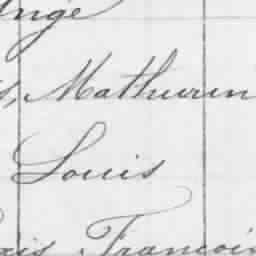 Ange
Mathurin
Louis
François